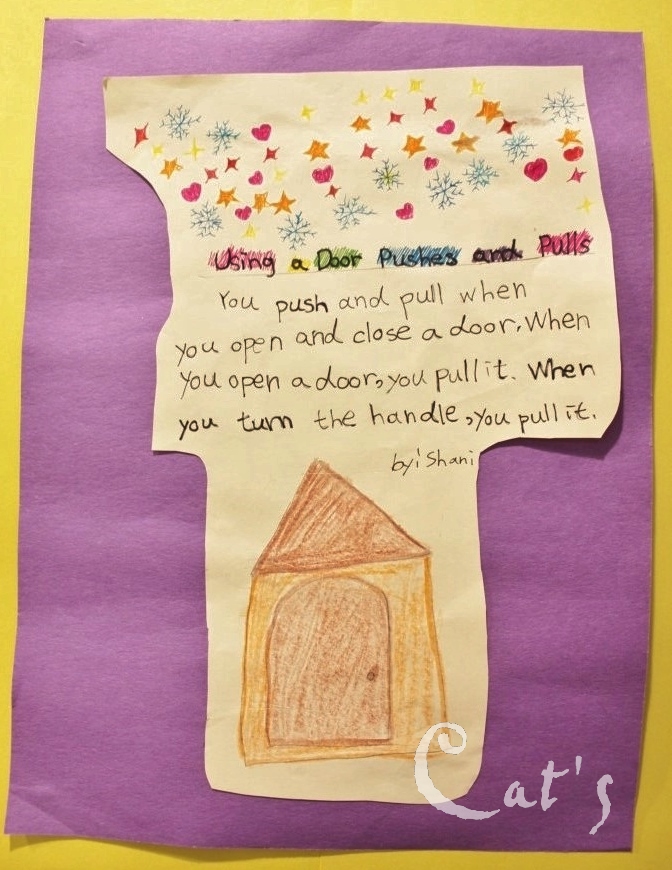 Using a Door Pushes and Pulls
You push and pull when
you open and close a door. When
you open a door, you pull it. When
you turn the handle, you pull it.
by: Shani
Cat's